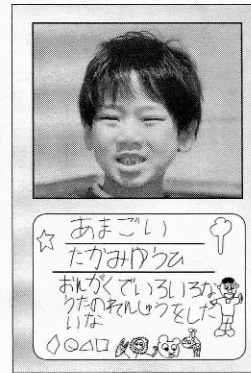 あまごい
たかみゆうひ
おんがくでいろいろな
うたのれんしゅうをした
いな